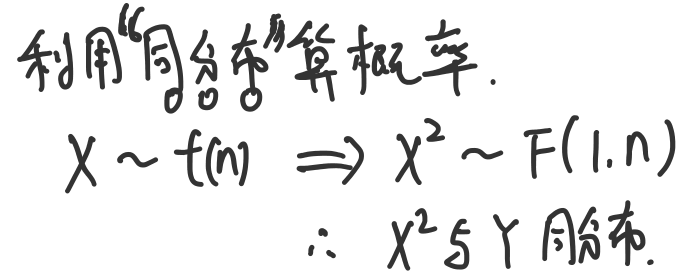 利用“同分布”算概率.
X ~ t(n) ⇒ X² ~ F(1.n)
∴ X²与Y同分布.